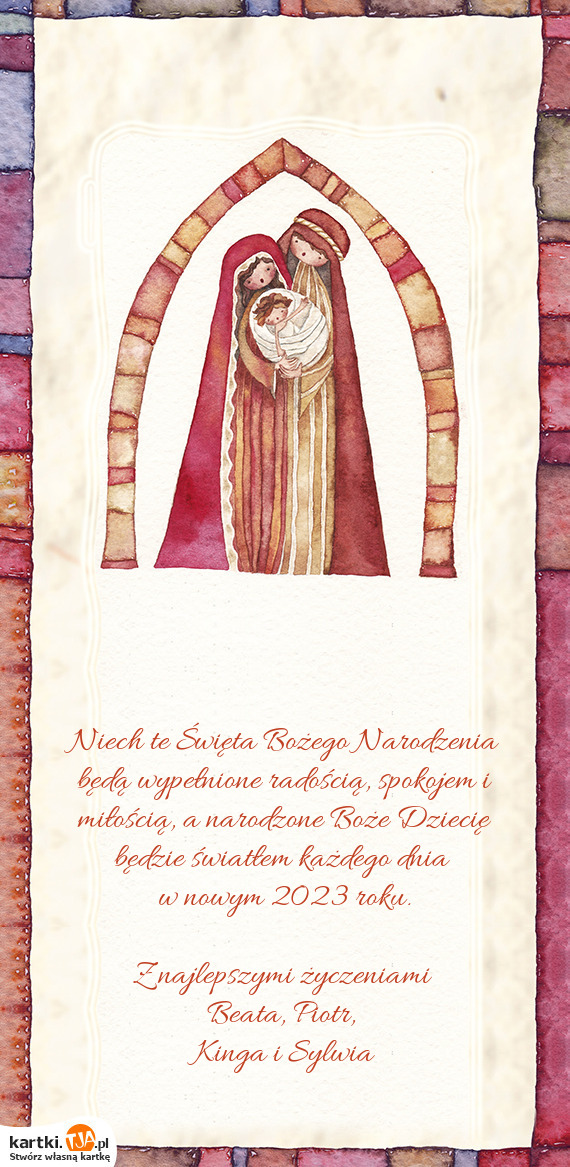 Niech te Święta Bożego Narodzenia
będą wypełnione radością, spokojem i
miłością, a narodzone Boże Dziecię
będzie światłem każdego dnia
w nowym 2023 roku.
Znajlepszymi życzeniami
Beata, Piotr,
Kinga i Sylwia
kartki.TJA.pl
Stwórz własną kartkę